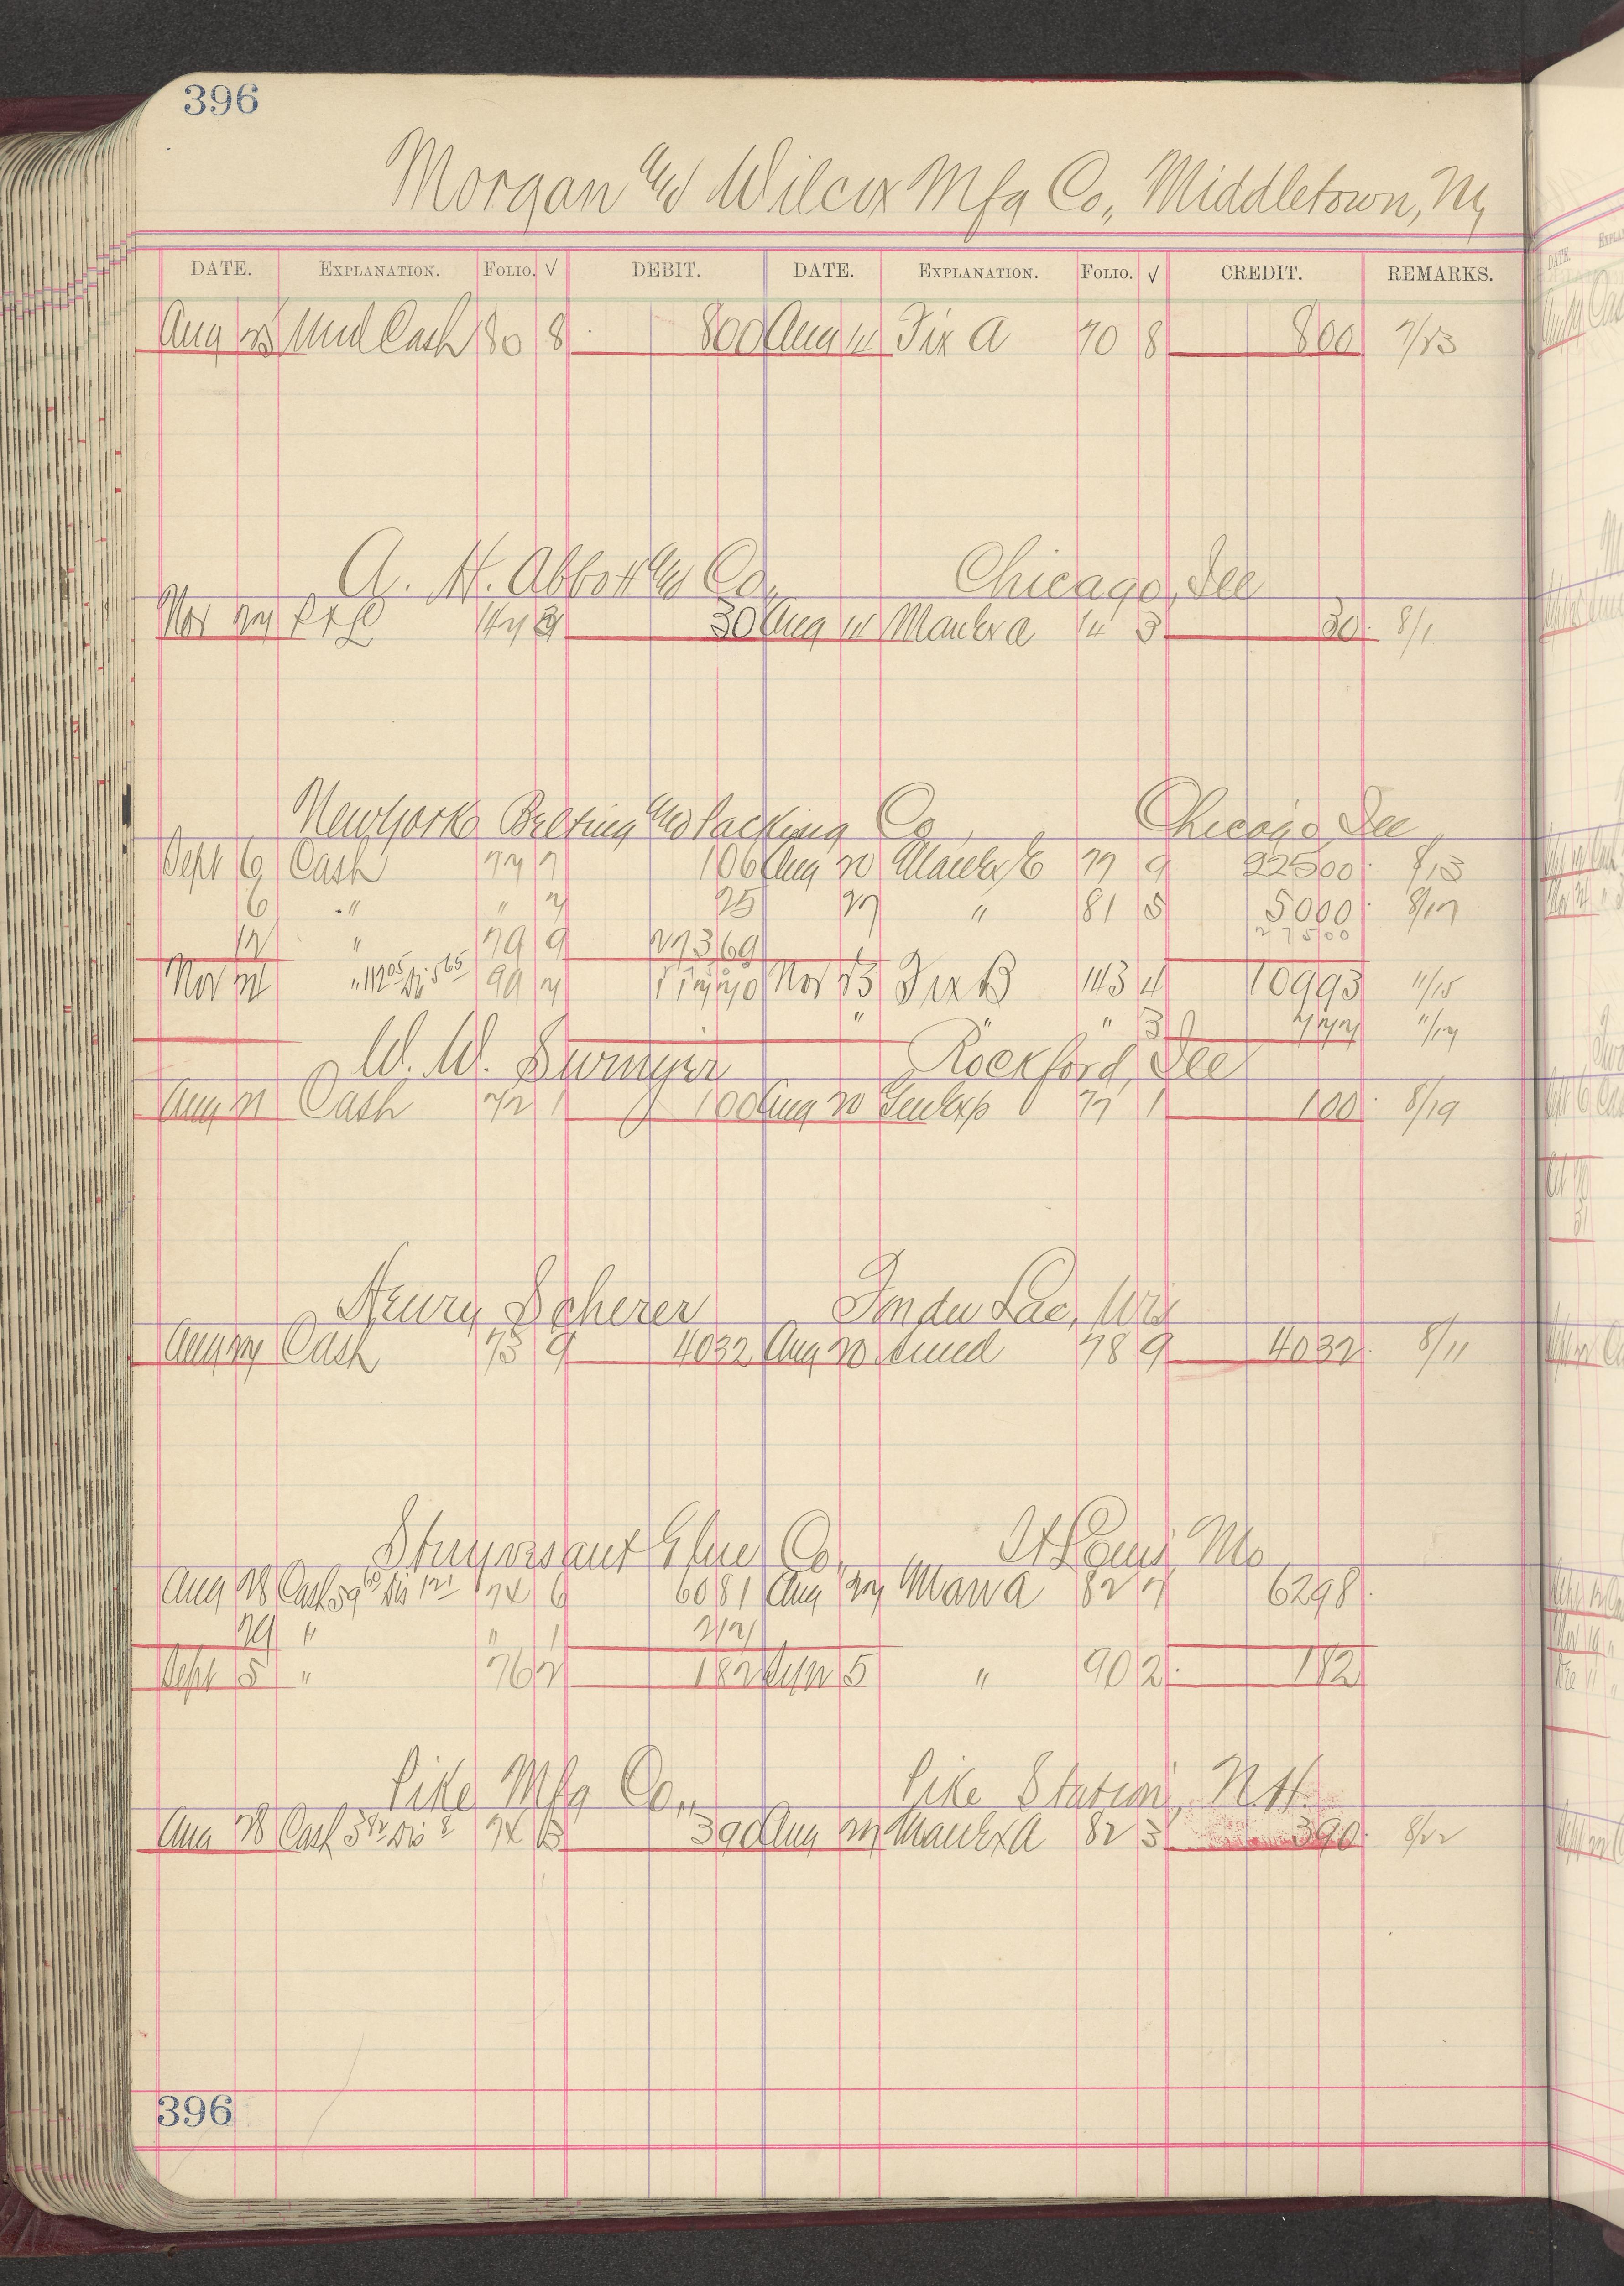 396
Morgan and Wilcox Mfg Co., Middletown, Ny
DATE. EXPLANATION. FOLIO. √ DEBIT. DATE. EXPLANATION. FOLIO. √ CREDIT. REMARKS.
Aug Cash 80 8 800 Aug 14 Fix A 70 8 800 7/23
A. H. Abbott and Co., Chicago, Ill
Nov 3 30 Aug 14 Man Ex a 3 30 8/1
New York Belting and Packing Co., Chicago, Ill,
Sept 6 Cash 77 7 106 Aug 20 Man Ex 77 9 22500 8/13
6 " " 2 25 27 " 81 5 5000 8/17
12 " 79 9 27369 27500
Nov 21 " 112 05 Dis 5 65 99 2 11770 Nov 23 Fix B 143 4 10993 11/15
" " " 3 777 11/17
W. W. Rockford, Ill
Aug 21 Cash 72 1 100 Aug 20 Gen Exp 77 1 100 8/19
Henry Scherer Fon du Lac, Wis
Aug 24 Cash 73 9 4032 Aug 20 78 9 4032 8/11
Stuyvesant Glue Co., St Louis, Mo
Aug 28 Cash 59 60 Dis 1 21 74 6 6081 Aug 24 Man a 82 7 6298
29 " " 1 217
Sept 5 " 76 2 182 Sept 5 " 90 2 182
Pike Mfg Co., Pike Station, N.H.
Aug 28 Cash 3 82 Dis 8 74 3 390 Aug 24 Man Ex A 82 3 390 8/22
396